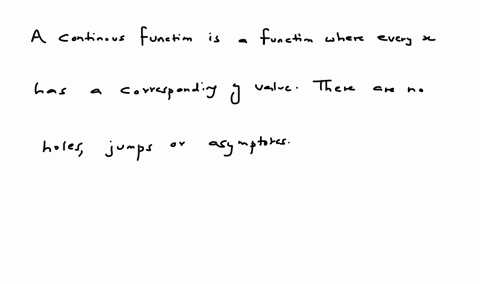 A continous function is a function where every x
has a corresponding y value. There are no
holes, jumps or asymptotes.